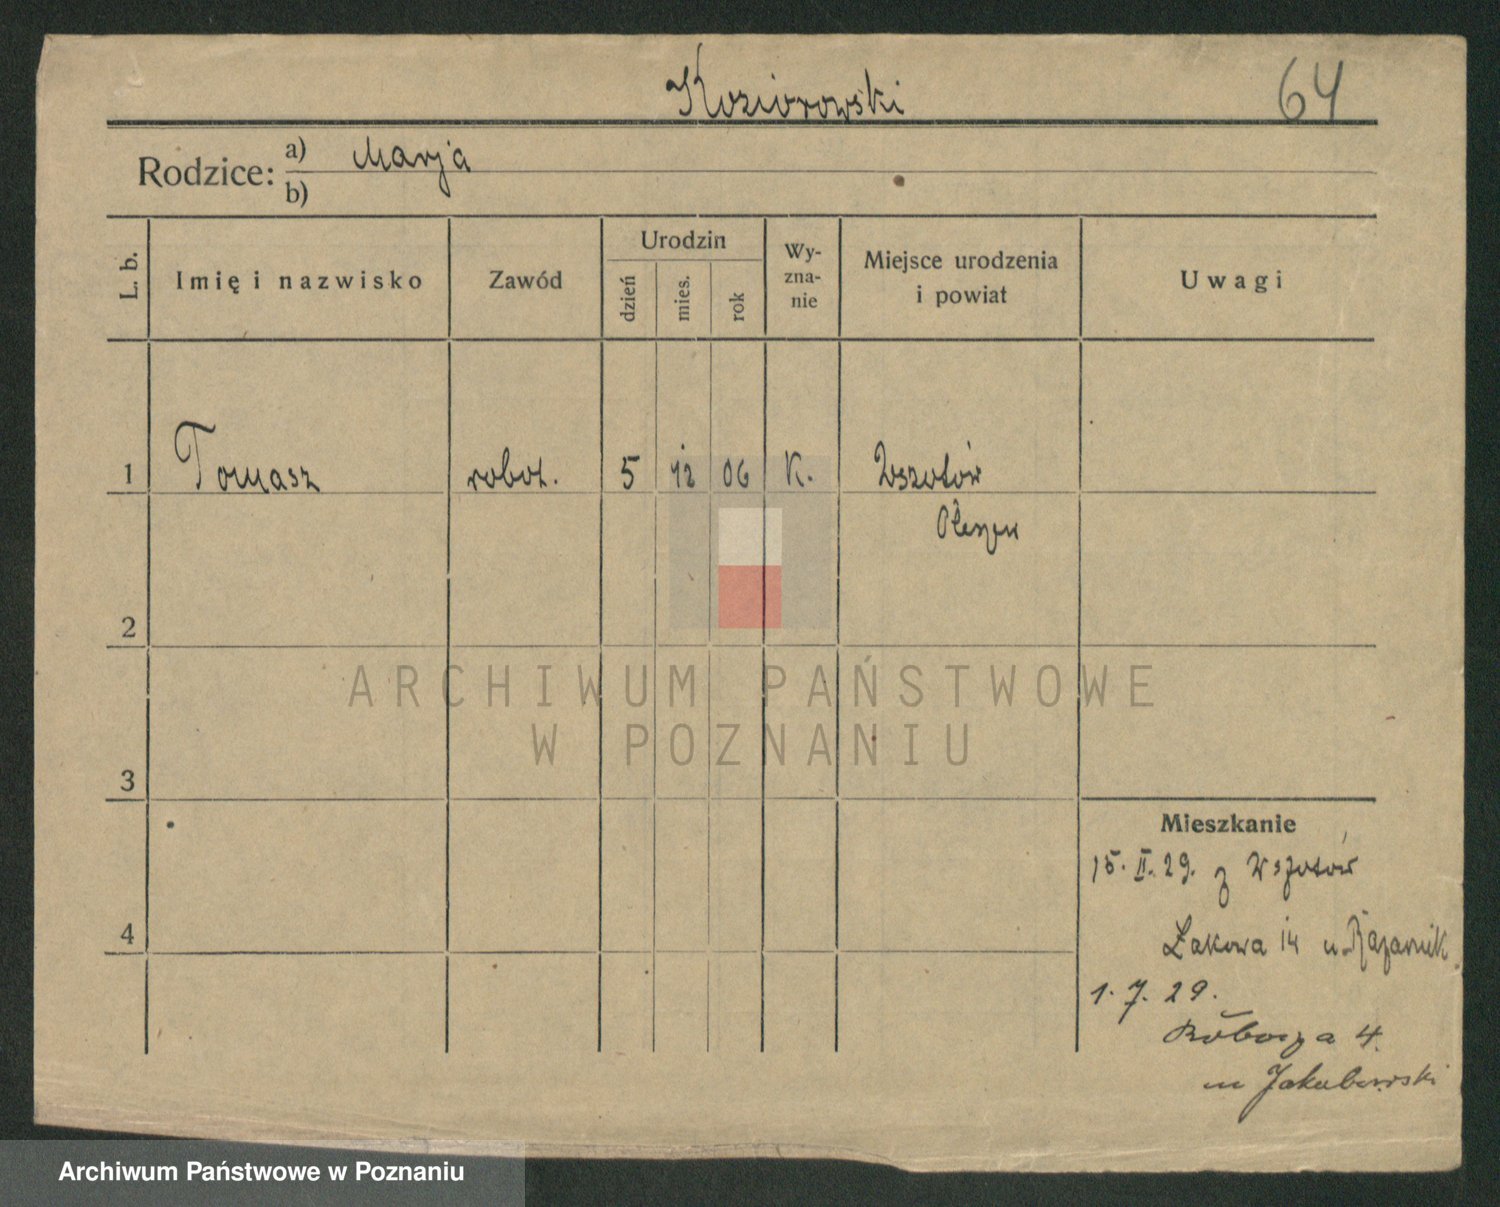 Koziorowski
64
Rodzice: a) Marja
b)
L. b. Imię i nazwisko Zawód Urodzin dzień mies. rok Wyzna-nie Miejsce urodzenia i powiat Uwagi
1 Tomasz robot. 5 12 06 K. Wszołów
Pleszew
2
ARCHIWUM PAŃSTWOWE
W POZNANIU
3
Mieszkanie
15. II. 29. z Wszołów
4
Łąkowa 14 u
1. 7. 29.
4.
u Jakubowski
Archiwum Państwowe w Poznaniu